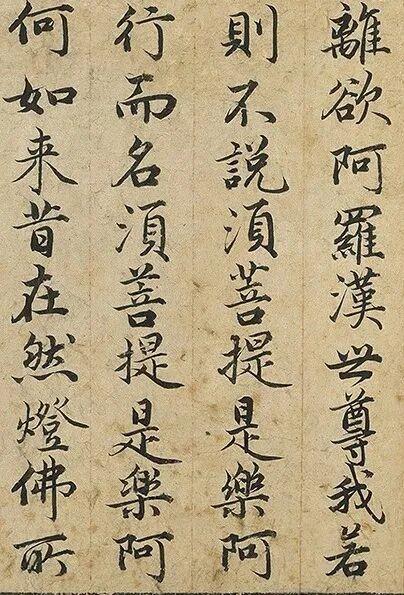 離欲阿羅漢世尊我若
則不說須菩提是樂阿
行而名須菩提是樂阿
何如来昔在然燈佛所